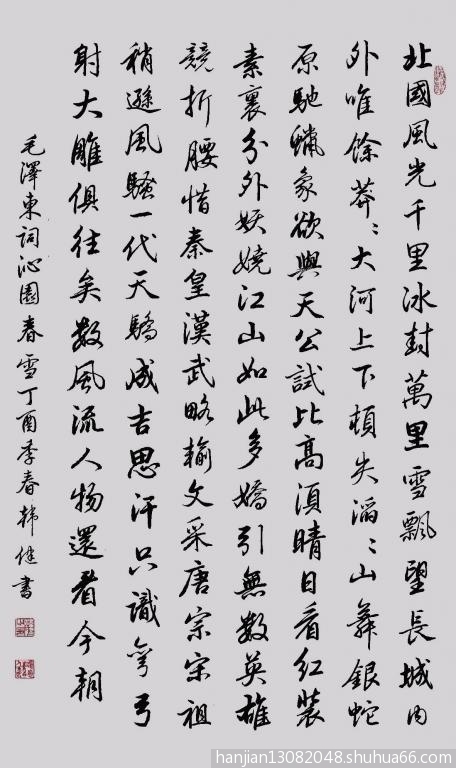 北國風光千里冰封萬里雪飄望長城内
外唯餘莽〻大河上下頓失滔〻山舞銀蛇
原馳蠟象欲與天公試比高須晴日看紅裝
素裹分外妖嬈江山如此多嬌引無數英雄
競折腰惜秦皇漢武略輸文采唐宗宋祖
稍遜風騷一代天驕成吉思汗只識彎弓
射大雕俱往矣數風流人物還看今朝
毛澤東詞沁園春雪丁酉季春韩健書
hanjian13082048.shuhua66.com